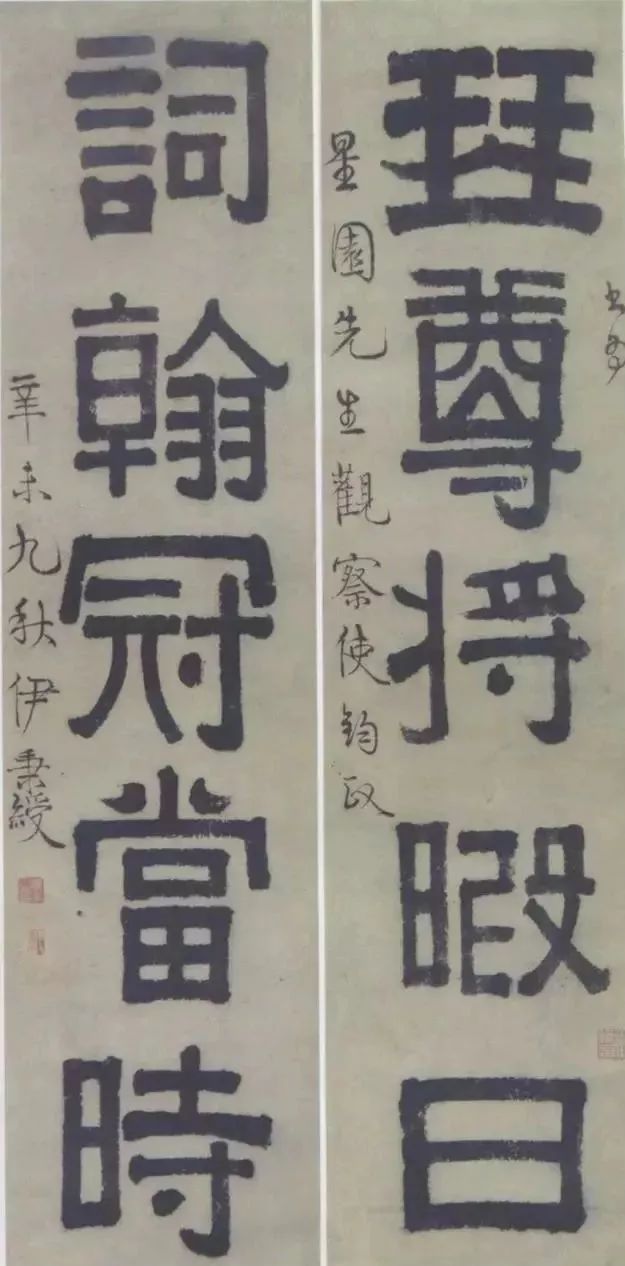 書為
琴尊将暇日
星園先生觀察使鈞政
詞翰冠當時
辛未九秋伊秉綬